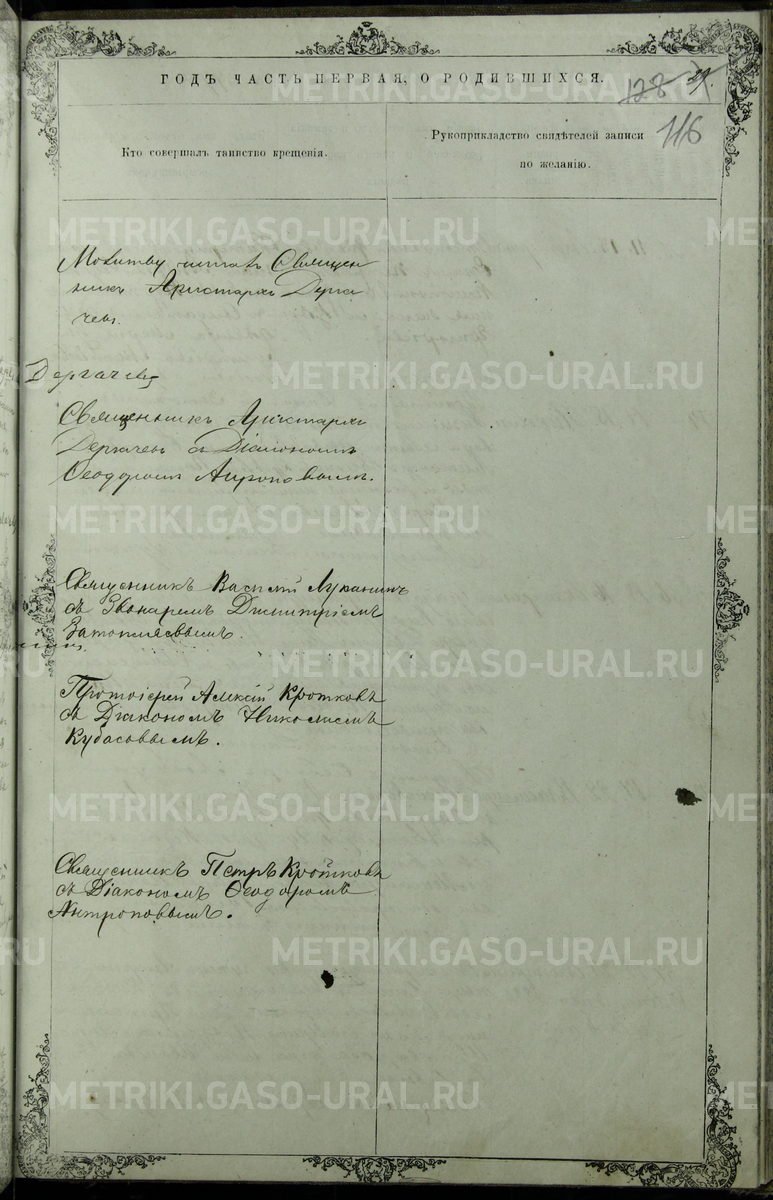 ГОДЪ ЧАСТЬ ПЕРВАЯ, О РОДИВШИХСЯ.
128 29.
116
Кто совершалъ таинство крещенія.
Рукоприкладство свидѣтелей записи
по желанію.
METRIKI.GASO-URAL.RU
Молитву читалъ Священ
никъ Аристархъ Дерга
чевъ.
Дергачевъ
Священникъ Аристархъ
Дергачевъ съ Діакономъ
Ѳеодоромъ Антроповымъ.
Священникъ Василій Луканинъ
съ Звонаремъ Димитріемъ
Затопляевымъ.
Протоіерей Алексій Кротковъ
съ Діакономъ Николаемъ
Кубасовымъ.
Священникъ Петръ Кротковъ
съ Діакономъ Ѳеодоромъ
Антроповымъ.